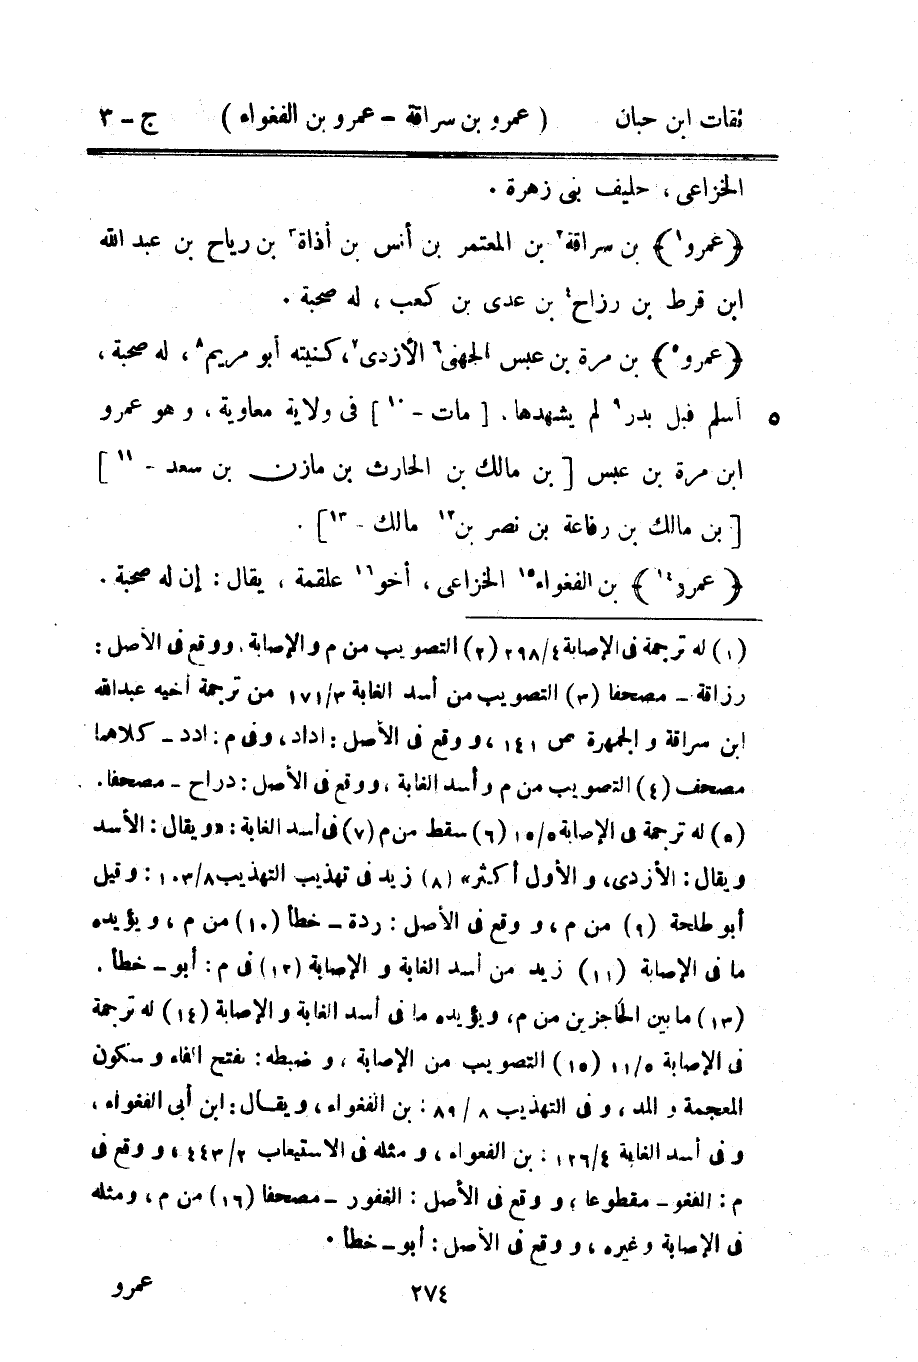 ثقات ابن حبان ( عمرو بن سراقة – عمرو بن الفغواء ) ج – ٣
الخزاعى ، حليف بنى زهرة .
﴿ عمرو١ ﴾ بن سراقة٢ بن المعتمر بن أنس بن أذاة٣ بن رياح بن عبد الله
ابن قرط بن رزاح٤ بن عدى بن كعب ، له صحبة .
﴿ عمرو٥ ﴾ بن مرة بن عبس الجهنى٦ الأزدى٧، كنيته أبو مريم٨ ، له صحبة ،
٥ أسلم قبل بدر٩ لم يشهدها . [ مات - ١٠ ] فى ولاية معاوية ، و هو عمرو
ابن مرة بن عبس [ بن مالك بن الحارث بن مازن بن سعد - ١١ ]
[ بن مالك بن رفاعة بن نصر بن١٢ مالك - ١٣ ] .
﴿ عمرو١٤ ﴾ بن الفغواء١٥ الخزاعى ، أخو١٦ علقمة ، يقال : إن له صحبة .
(١) له ترجمة فى الإصابة ٢٩٨/٤ (٢) التصويب من م و الإصابة ، و وقع فى الأصل :
رزاقة – مصحفا (٣) التصويب من أسد الغابة ١٧١/٣ من ترجمة أخيه عبدالله
ابن سراقة و الجمهرة ص ١٤١ ، و وقع فى الأصل : اداد ، و فى م : ادد – كلاهما
مصحف (٤) التصويب من م و أسد الغابة ، و وقع فى الأصل : دراح – مصحفا .
(٥) له ترجمة فى الإصابة ١٥/٥ (٦) سقط من م (٧) فى أسد الغابة : « و يقال : الأسد
و يقال : الأزدى ، و الأول أكثر » (٨) زيد فى تهذيب التهذيب ١٠٣/٨ : و قيل
أبو طلحة (٩) من م ، و وقع فى الأصل : ردة – خطأ (١٠) من م ، و يؤيده
ما فى الإصابة (١١) زيد من أسد الغابة و الإصابة (١٢) فى م : أبو – خطأ .
(١٣) ما بين الحاجزين من م ، و يؤيده ما فى أسد الغابة و الإصابة (١٤) له ترجمة
فى الإصابة ١١/٥ (١٥) التصويب من الإصابة ، و ضبطه : بفتح الفاء و سكون
المعجمة و المد ، و فى التهذيب ٨٩/٨ : بن الفغواء ، و يقال : ابن أبى الفغواء ،
و فى أسد الغابة ١٢٦/٤ : بن الفعواء ، و مثله فى الاستيعاب ٤٤٣/٢ ، و وقع فى
م : الفغو – مقطوعا ، و وقع فى الأصل : الغفور – مصحفا (١٦) من م ، و مثله
فى الإصابة و غيره ، و وقع فى الأصل : أبو – خطأ .
٢٧٤ عمرو